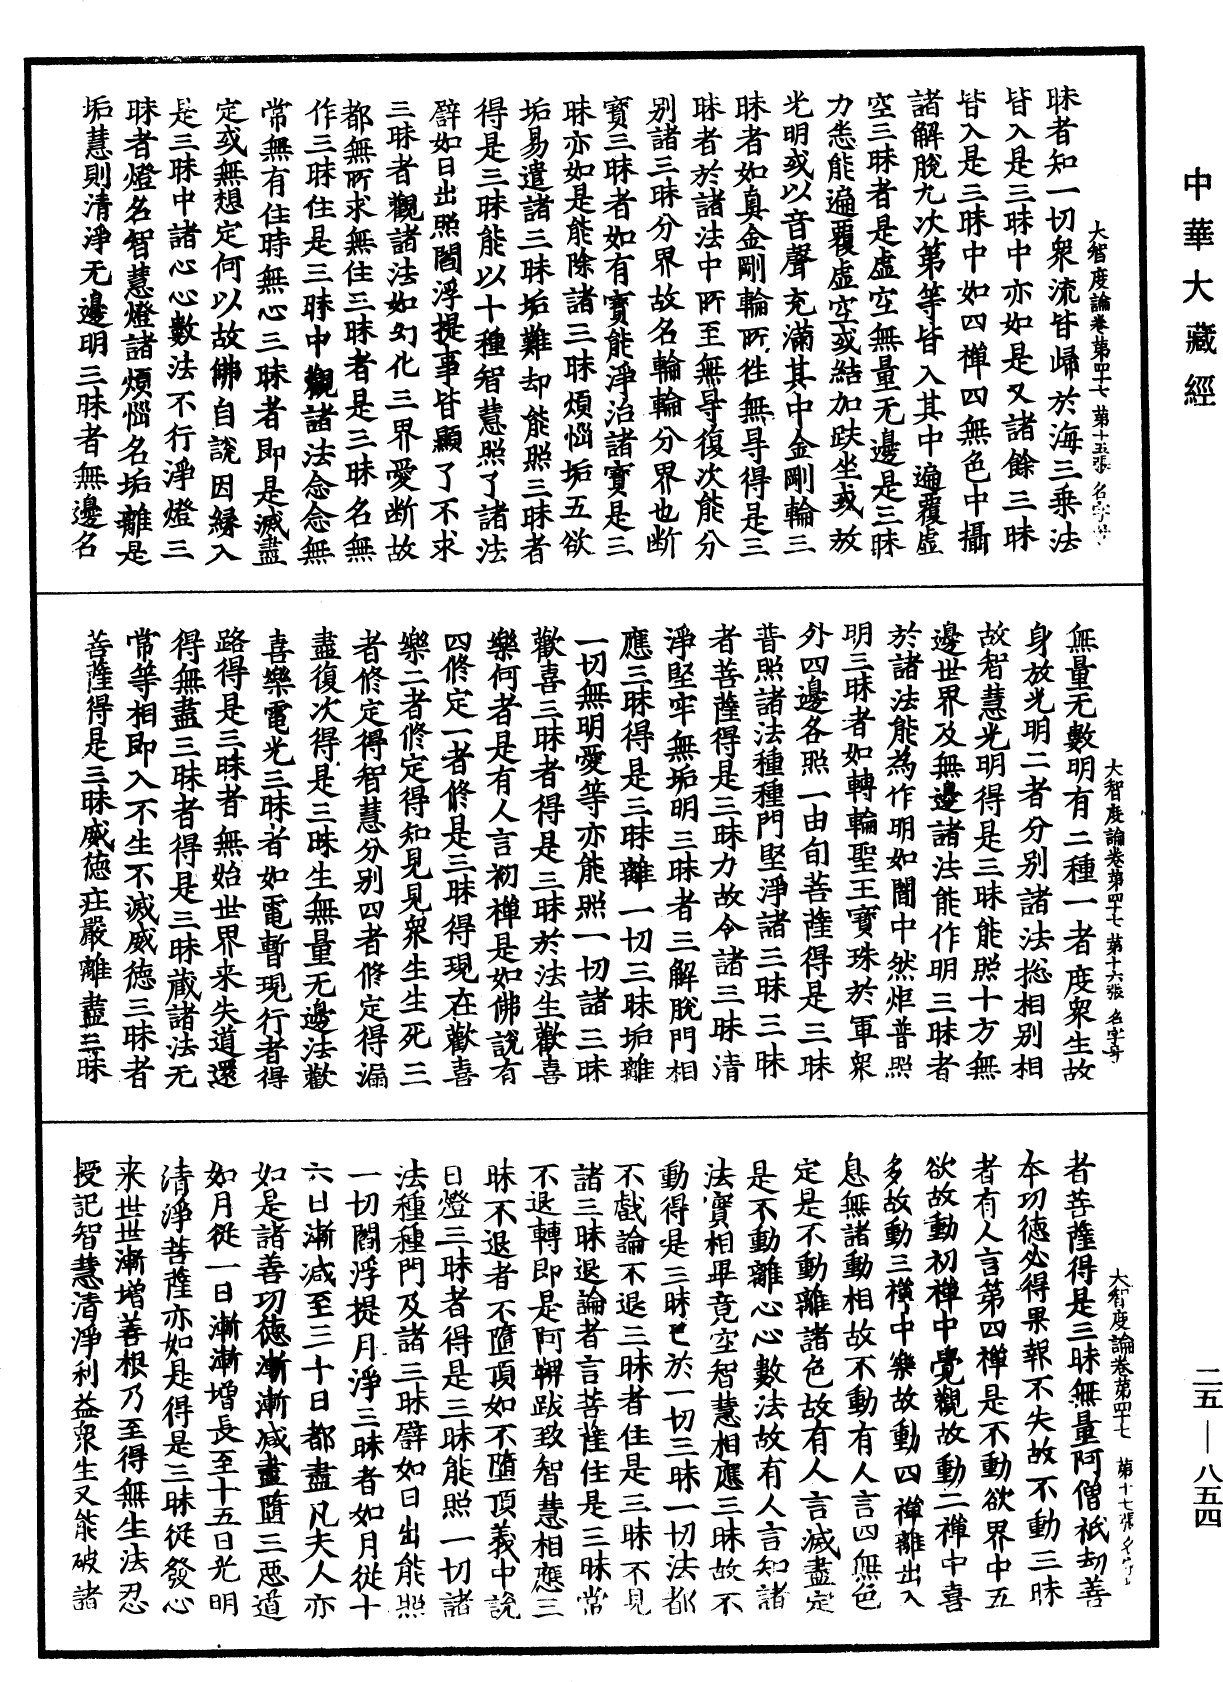 中華大藏經
大智度論卷第四十七 第十五張 名字
昧者知一切衆流皆歸於海三乗法
皆入是三昧中亦如是又諸餘三昧
皆入是三昧中如四禪四無色中攝
諸解脫九次第等皆入其中遍覆虛
空三昧者是虛空無量无邊是三昧
力悉能遍覆虛空或結加趺坐或放
光明或以音聲充滿其中金剛輪三
昧者如真金剛輪所往無㝵得是三
昧者於諸法中所至無㝵復次能分
別諸三昧分界故名輪輪分界也斷
寶三昧者如有寶能淨治諸寶是三
昧亦如是能除諸三昧煩惱垢五欲
垢易遣諸三昧垢難却能照三昧者
得是三昧能以十種智慧照了諸法
譬如日出照閻浮提事皆顯了不求
三昧者觀諸法如幻化三界愛斷故
都無所求無住三昧者是三昧名無
作三昧住是三昧中觀諸法念念無
常無有住時無心三昧者即是滅盡
定或無想定何以故佛自說因緣入
是三昧中諸心心數法不行淨燈三
昧者燈名智慧燈諸煩惱名垢離是
垢慧則清淨无邊明三昧者無邊名
大智度論卷第四十七 第十六張 名字号
無量无數明有二種一者度衆生故
身放光明二者分別諸法揔相別相
故智慧光明得是三昧能照十方無
邊世界及無邊諸法能作明三昧者
於諸法能為作明如闇中然炬普照
明三昧者如轉輪聖王寶珠於軍衆
外四邊各照一由旬菩薩得是三昧
普照諸法種種門堅淨諸三昧三昧
者菩薩得是三昧力故令諸三昧清
淨堅牢無垢明三昧者三解脫門相
應三昧得是三昧離一切三昧垢離
一切無明愛等亦能照一切諸三昧
歡喜三昧者得是三昧於法生歡喜
樂何者是有人言初禪是如佛說有
四修定一者修是三昧得現在歡喜
樂二者修定得知見見衆生生死三
者修定得智慧分別四者修定得漏
盡復次得是三昧生無量无邊法歡
喜樂電光三昧者如電暫現行者得
路得是三昧者無始世界来失道還
得無盡三昧者得是三昧蔵諸法无
常等相即入不生不滅威徳三昧者
菩薩得是三昧威徳㽵嚴離盡三昧
大智度論卷第四十七 第十七張
者菩薩得是三昧無量阿僧祇劫善
本功徳必得果報不失故不動三昧
者有人言第四禪是不動欲界中五
欲故動初禪中覺觀故動二禪中喜
多故動三禪中樂故動四禪離出入
息無諸動相故不動有人言四無色
定是不動離諸色故有人言滅盡定
是不動離心心數法故有人言知諸
法實相畢竟空智慧相應三昧故不
動得是三昧已於一切三昧一切法都
不戲論不退三昧者住是三昧不見
諸三昧退論者言菩薩住是三昧常
不退轉即是阿鞞跋致智慧相應三
昧不退者不墮頂如不墮頂義中說
日燈三昧者得是三昧能照一切諸
法種種門及諸三昧譬如日出能照
一切閻浮提月淨三昧者如月從十
六日漸減至三十日都盡凡夫人亦
如是諸善功徳漸漸減盡隨三惡道
如月從一日漸漸增長至十五日光明
清淨菩薩亦如是得是三昧從發心
来世世漸增善根乃至得無生法忍
授記智慧清淨利益衆生又能破諸
二五—八五四